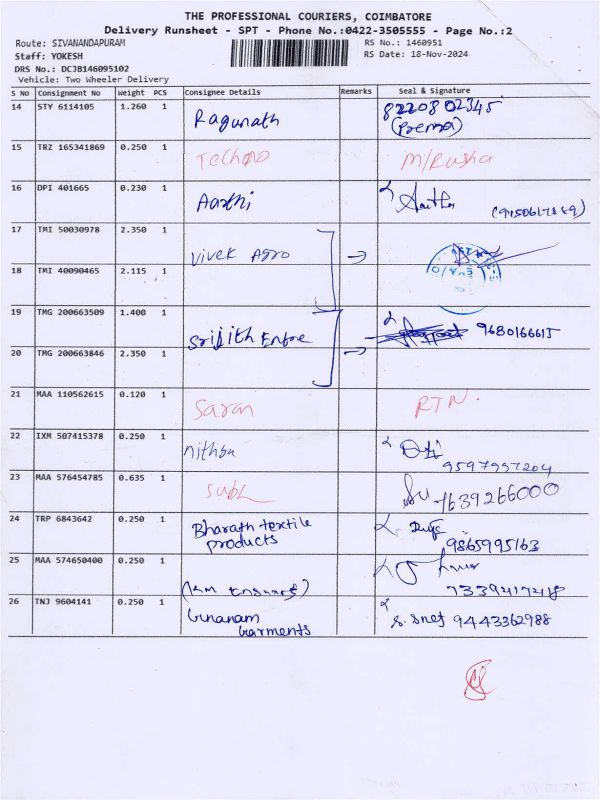 THE PROFESSIONAL COURIERS, COIMBATORE
Delivery Runsheet - SPT - Phone No.:0422-3505555 - Page No.:2
Route: SIVANANDAPURAM
RS No.: 1460951
Staff: YOKESH
RS Date: 18-Nov-2024
DRS No.: DCJB146095102
Vehicle: Two Wheeler Delivery
S No Consignment No Weight PCS Consignee Details Remarks Seal & Signature
14 STY 6114105 1.260 1 Ragunath 8220802345
(Prema)
15 TRZ 165341869 0.250 1 Techno M/Rusha
16 DPI 401665 0.230 1 Aarthi
17 TMI 50030978 2.350 1 Vivek Agro
18 TMI 40090465 2.115 1
19 TMG 200663509 1.400 1 Srijith 9680166615
20 TMG 200663846 2.350 1
21 MAA 110562615 0.120 1 Saran RTN.
22 IXM 507415378 0.250 1
9597997204
23 MAA 576454785 0.635 1 7639266000
24 TRP 6843642 0.250 1 Bharath textile
products 9865995163
25 MAA 574650400 0.250 1
7339417418
26 TNJ 9604141 0.250 1 Gnanam 9443362988
Garments